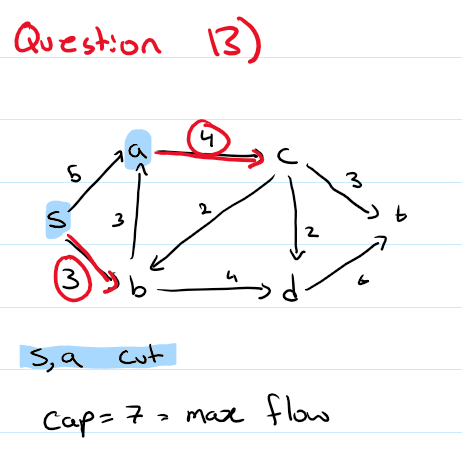 Question 13)
a
4
c
5
3
t
S
3
2
2
3
b
4
d
6
S,a cut
cap = 7 = max flow